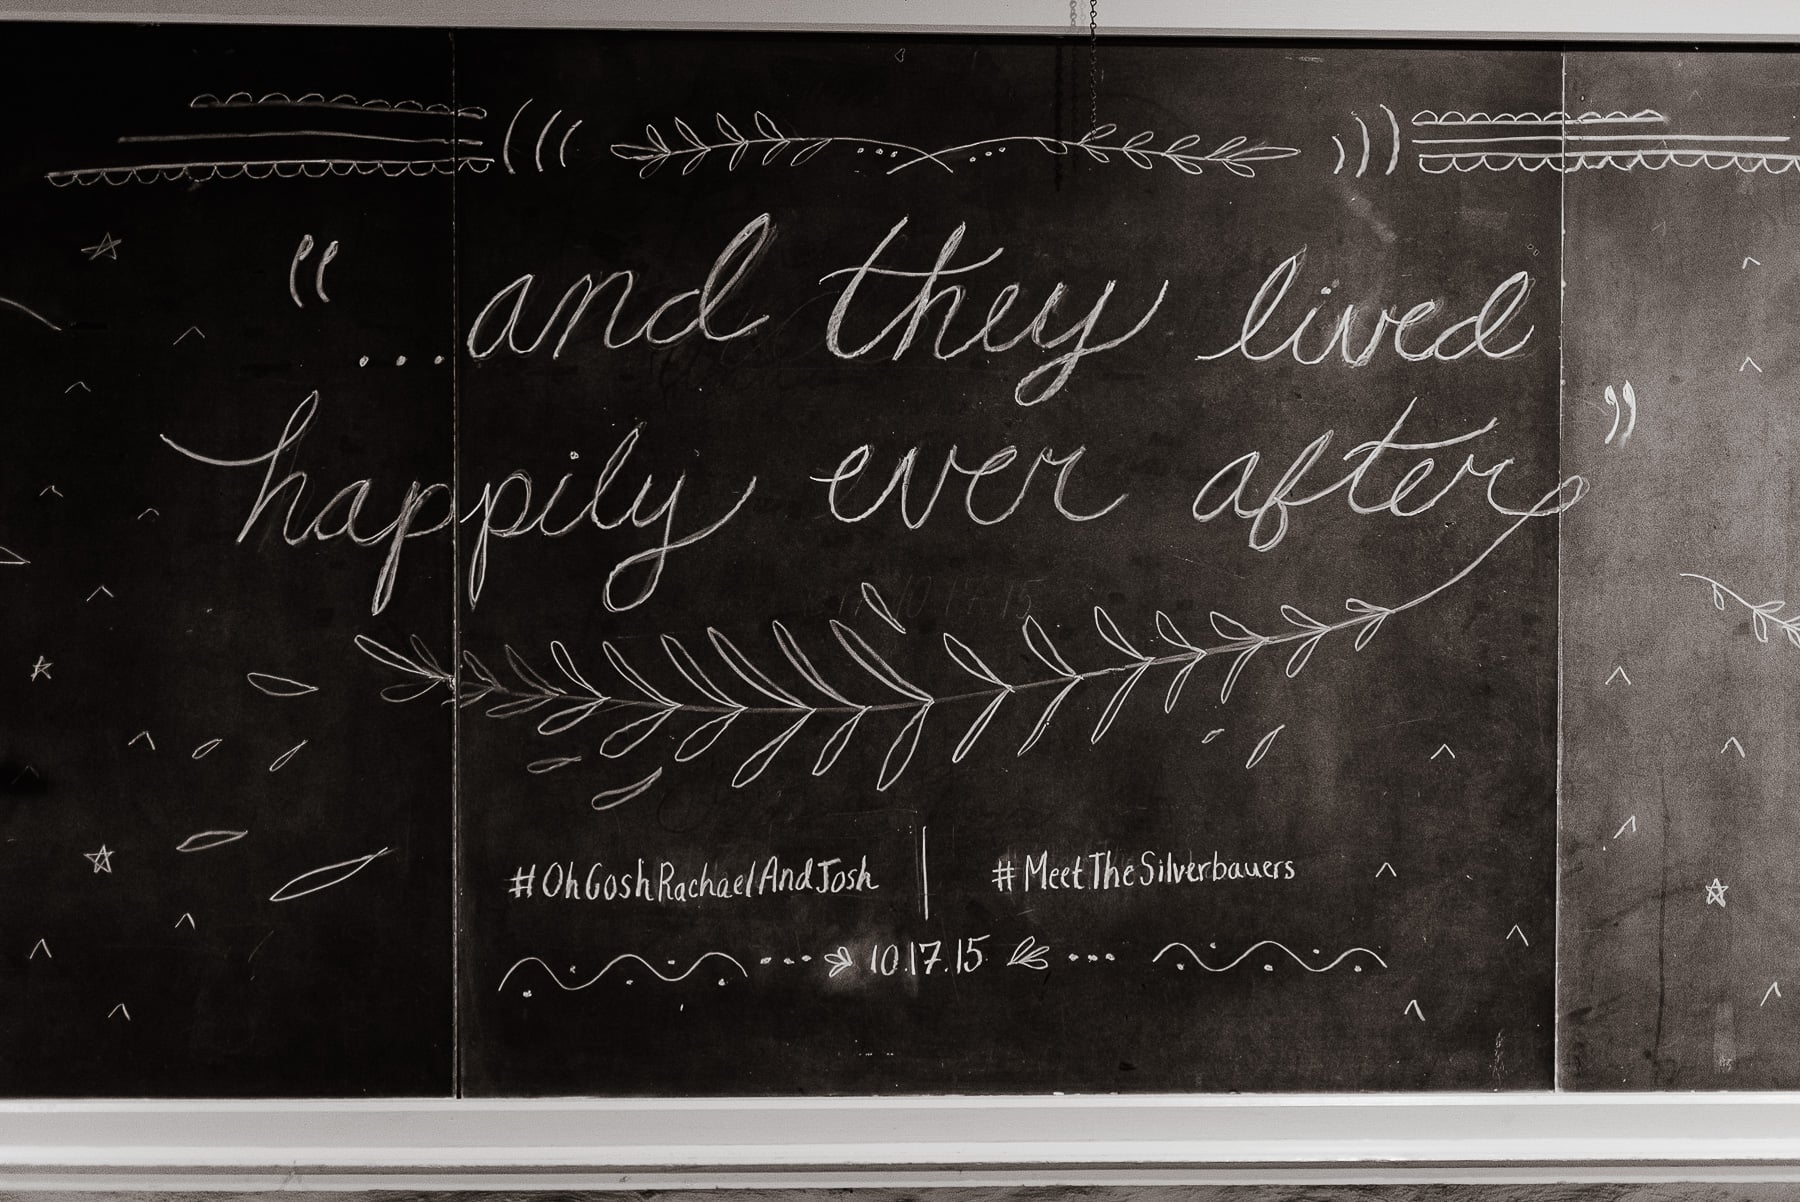 “...and they lived
happily ever after”
#OhGoshRachaelAndJosh | #MeetTheSilverbauers
10.17.15